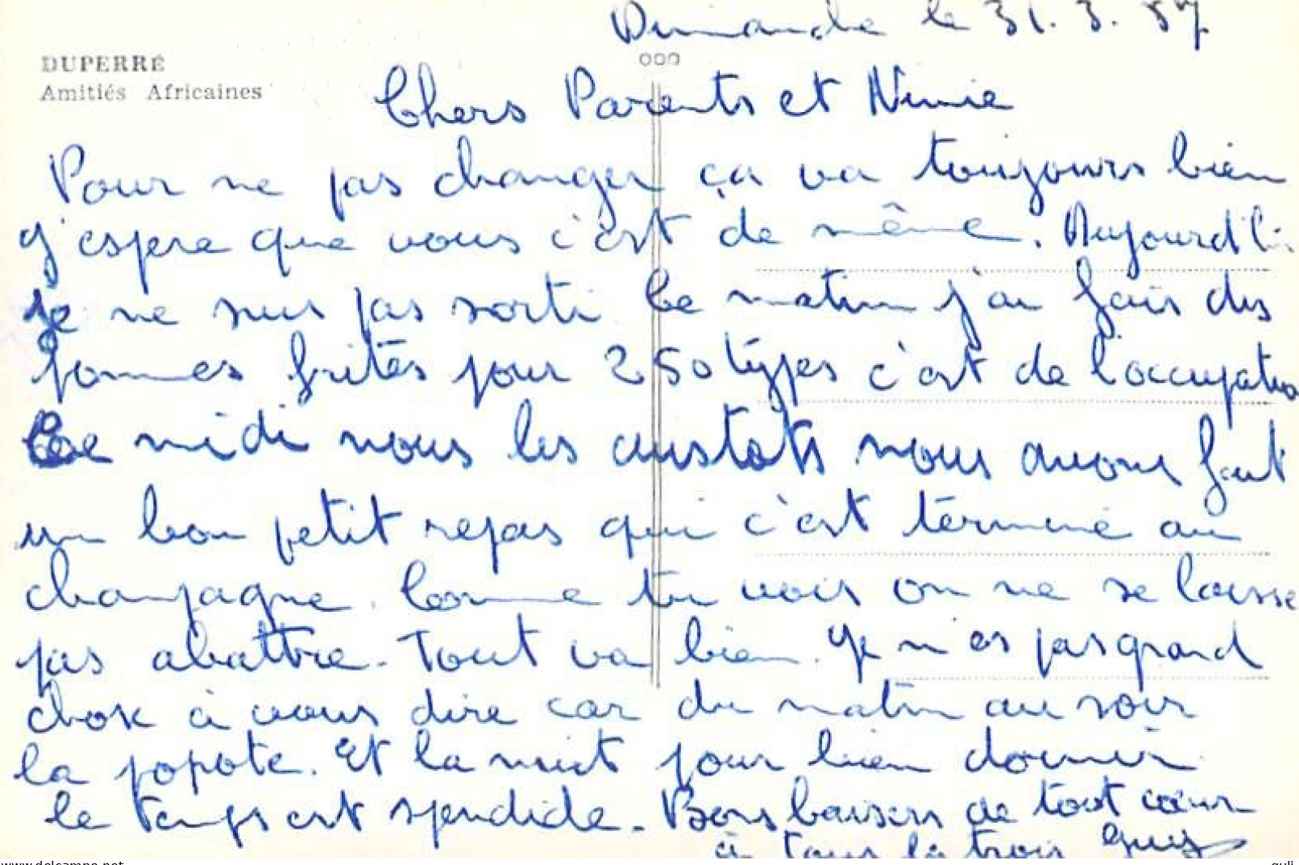 Dimanche le 31.3.57
DUPERRÉ
Amitiés Africaines
Chers Parents et Ninie
Pour ne pas changer ça va toujours bien
j'espere que vous c'est de même. Aujourd'hui
je ne suis pas sorti Ce matin j'ai fais des
pommes frites pour 250 types c'est de l'occupation
Ce midi nous les cuistots nous avons fait
un bon petit repas qui c'est términé au
champagne. Comme tu vois on ne se laisse
pas abattre. Tout va bien. Je n'es pas grand
chose à vous dire car du matin au soir
la popote. Et la nuit pour bien dormir
le temps est spendide. Bons baisers de tout cœur
à tous les trois Guy
www.delcampe.net